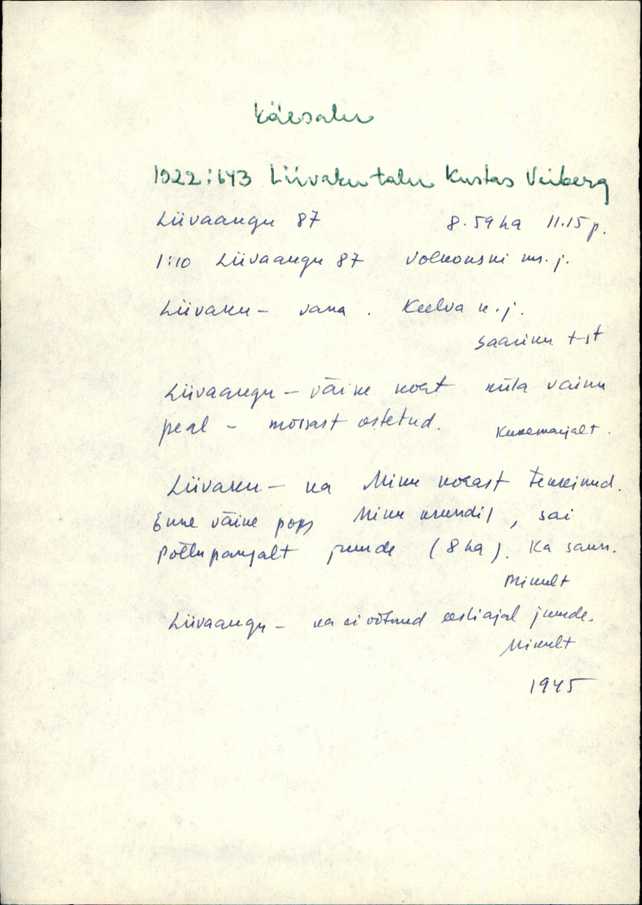 Käesalu
1922:643 Liivaku talu Kustas Veiberg
Liivaangu 87 8.59 ha 11.15 p.
1:10 Liivaangu 87 Volkonski m. j.
Liivaku – vana. Keelva k. j.
Saariku t-st
Liivaangu – väike koht küla vainu
peal – mõisast ostetud. Kukemarjalt.
Liivaku – ka Miku kohast tekkinud.
Enne väike pops Miku krundil, sai
Põllupanjalt juurde (8 ha). Ka saun.
Mikult
Liivaangu – ka ei võtnud eestiajal juurde.
Mikult
1945